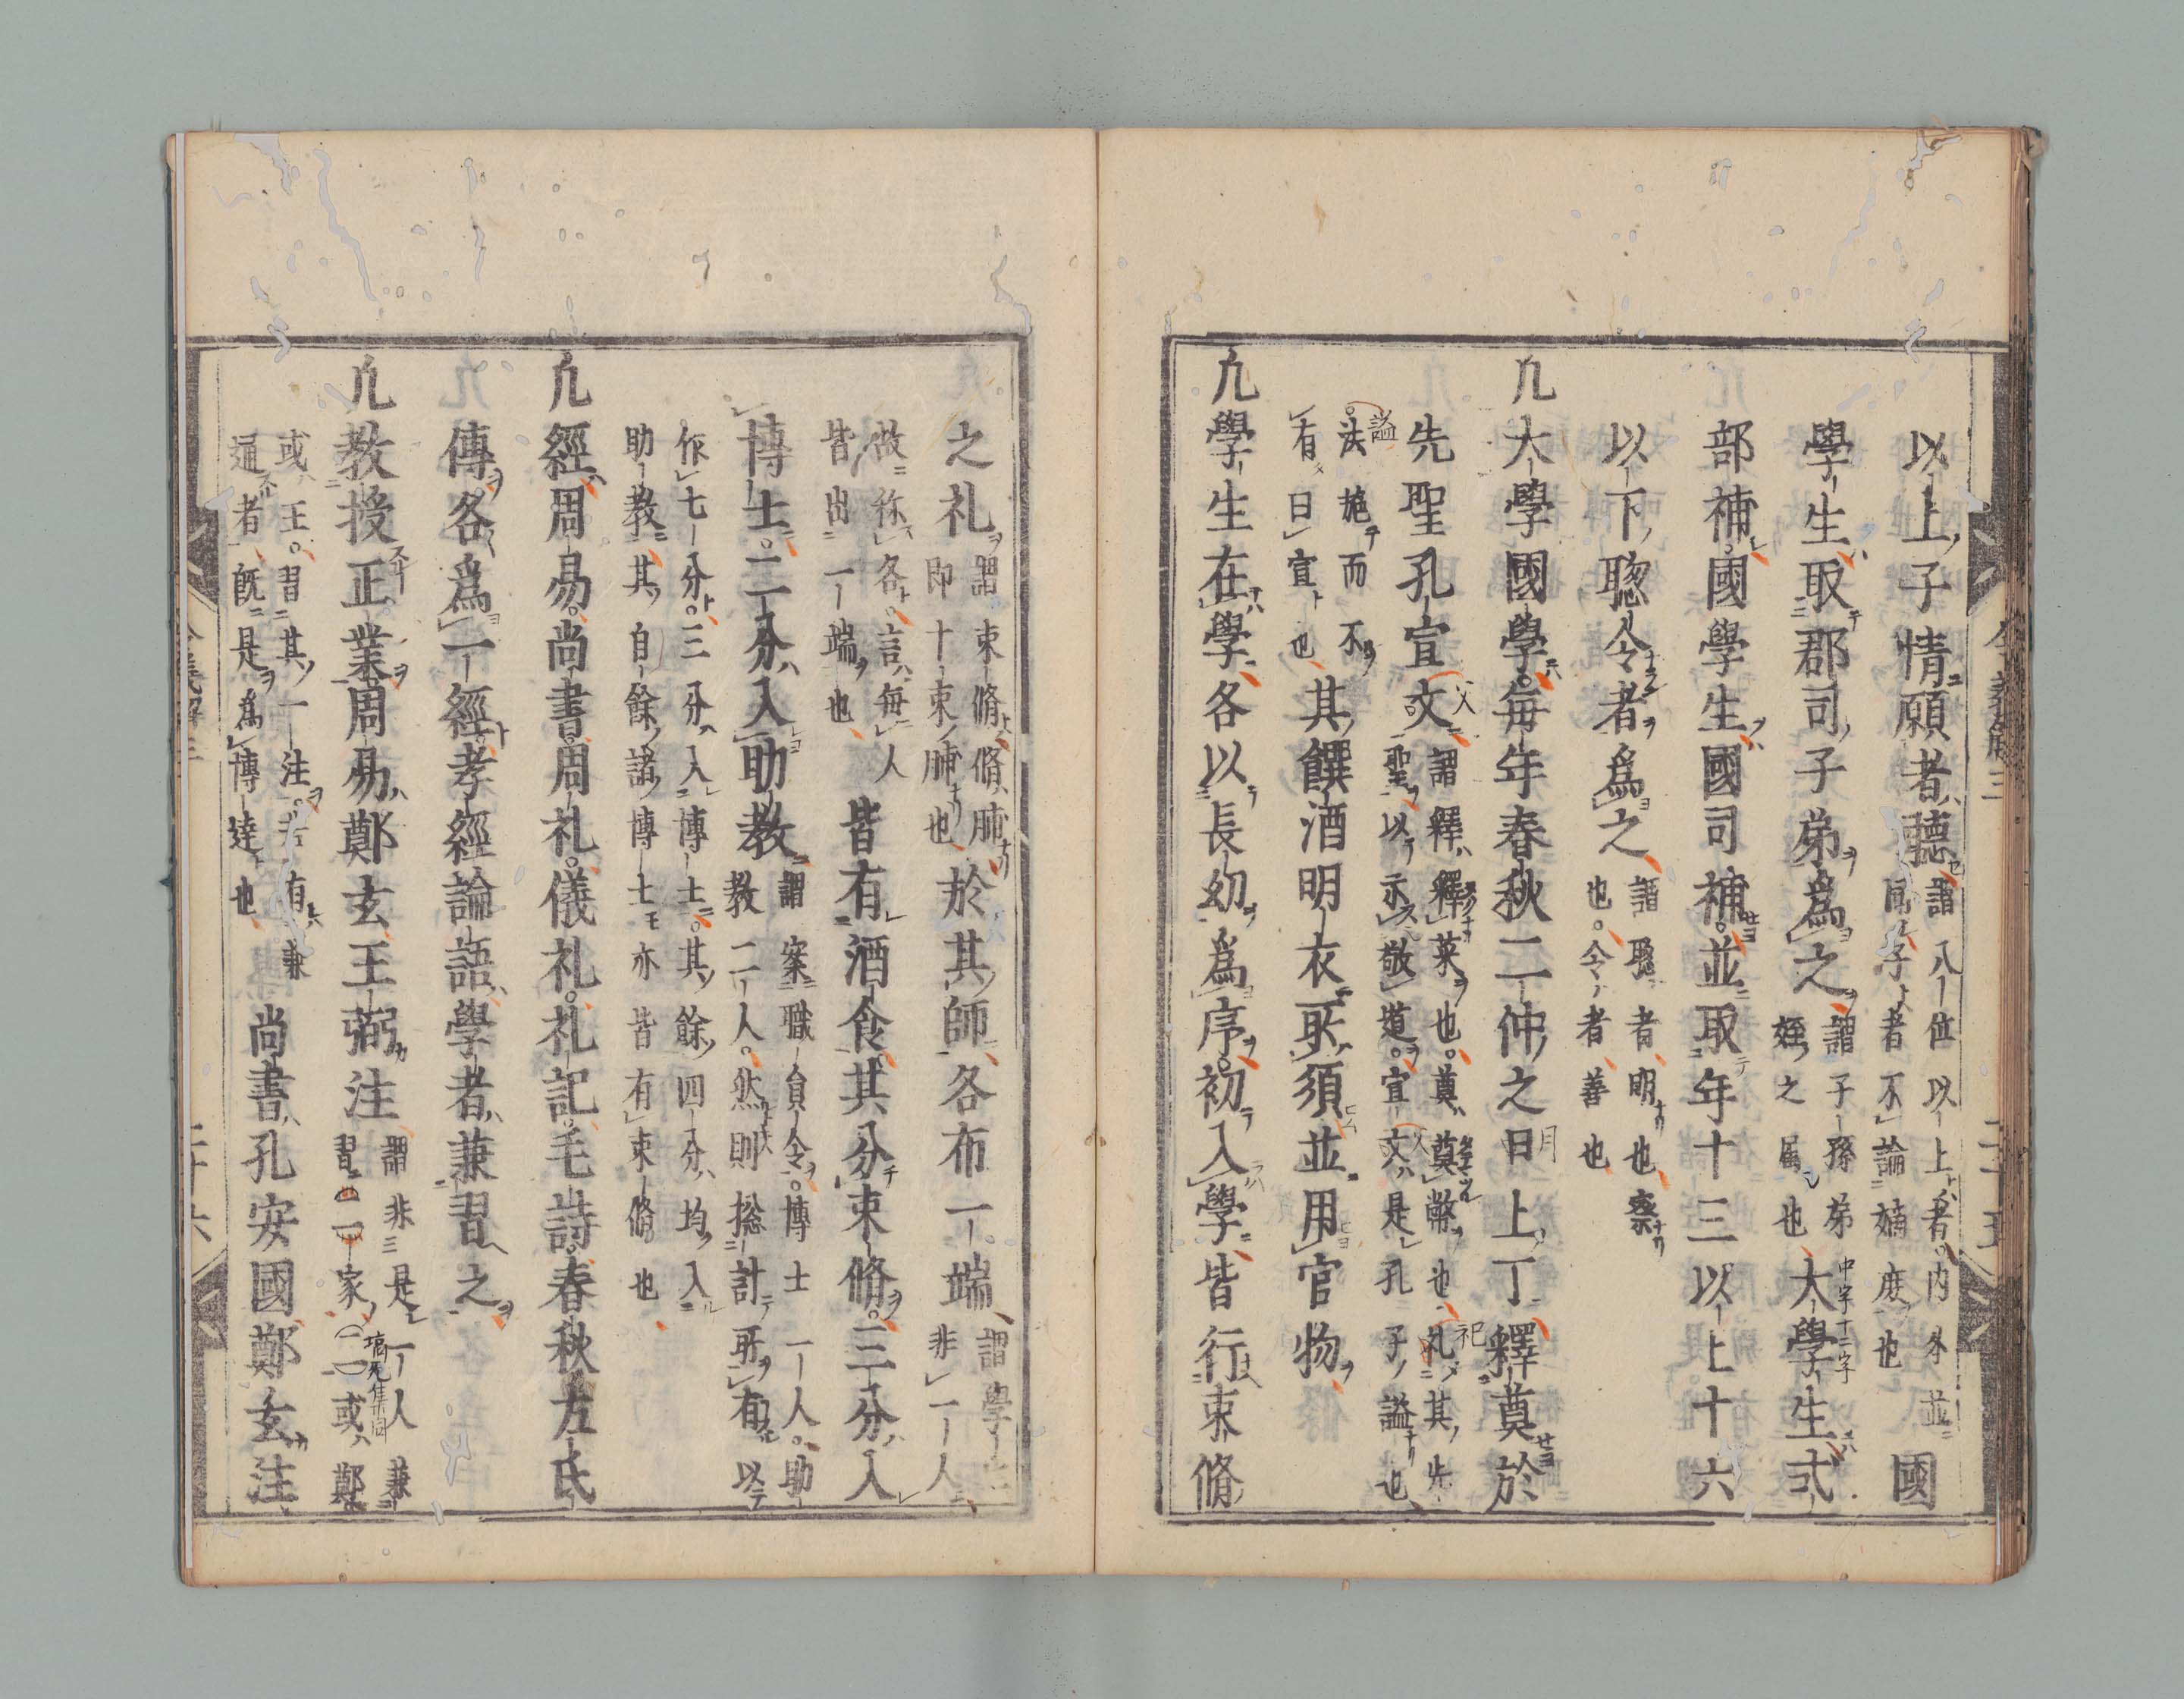 以上子情願者聽謂八位以上者内外並
同其子者不論嫡庶也國
學生取郡司子弟為之謂子孫弟
姪之属也大學生式
中字十二字
部補國學生國司補並取年十三以上十六
以下聡令者為之謂聡者明也察
也令者善也
凢大學國學每年春秋二仲之日上丁釋奠於
月
先聖孔宣文謂釋釋菜也奠奠幣也礼其先
聖以示敬道宣文是孔子謚也
父
祀
謚
法施而不
有日宣也其饌酒明衣所須並用官物
凢學生在學各以長幼為序初入學皆行束脩
之礼謂束脩脩脯
即十束脯也於其師各布一端謂學生
非一人
故称各言每人
皆出一端也皆有酒食其分束脩三分入
博士二分入助教謂案職員令博士一人助
教二人然則捴計所有以
作七分三分入博士其餘四分均入
助教其自餘諸博士亦皆有束脩也
凢經周易尚書周礼儀礼礼記毛詩春秋左氏
傳各為一經孝經論語學者兼習之
凢教授正業周易鄭玄王弼注謂非是一人兼
習二家或鄭
或王習其一注若有兼
通者既是為博達也尚書孔安國鄭玄注